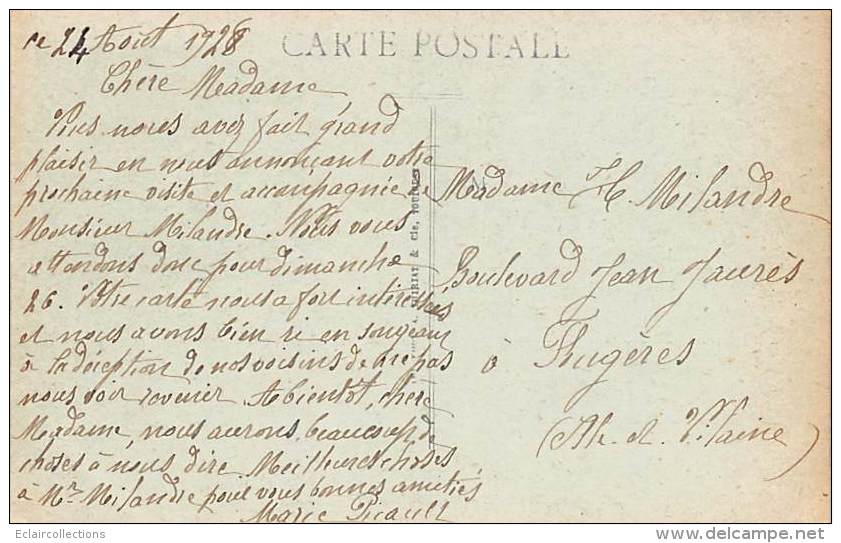 ce 24 Août 1928
CARTE POSTALE
Chère Madame
Vous nous avez fait grand
plaisir en nous annonçant votre
prochaine visite et accompagnée de
Monsieur Milandre. Nous vous
attendons donc pour dimanche
26. Votre carte nous a fort intéressées
et nous avons bien ri en songeant
à la déception de nos voisins de ne pas
nous voir revenir. A bientôt, chère
Madame, nous aurons beaucoup de
choses à nous dire Meilleures choses
à Mr Milandre pour vous bonnes amitiés
Marie
& Cie, TOULOUSE
Madame H. Milandre
Boulevard Jean Jaurès
à Fougères
(Ille-et-Vilaine)
Eclaircollections
www.delcampe.net